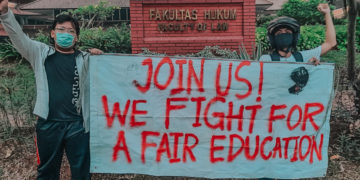 FAKULTAS HUKUM
FACULTY OF LAW
JOIN US!
WE FIGHT FOR
A FAIR EDUCATION